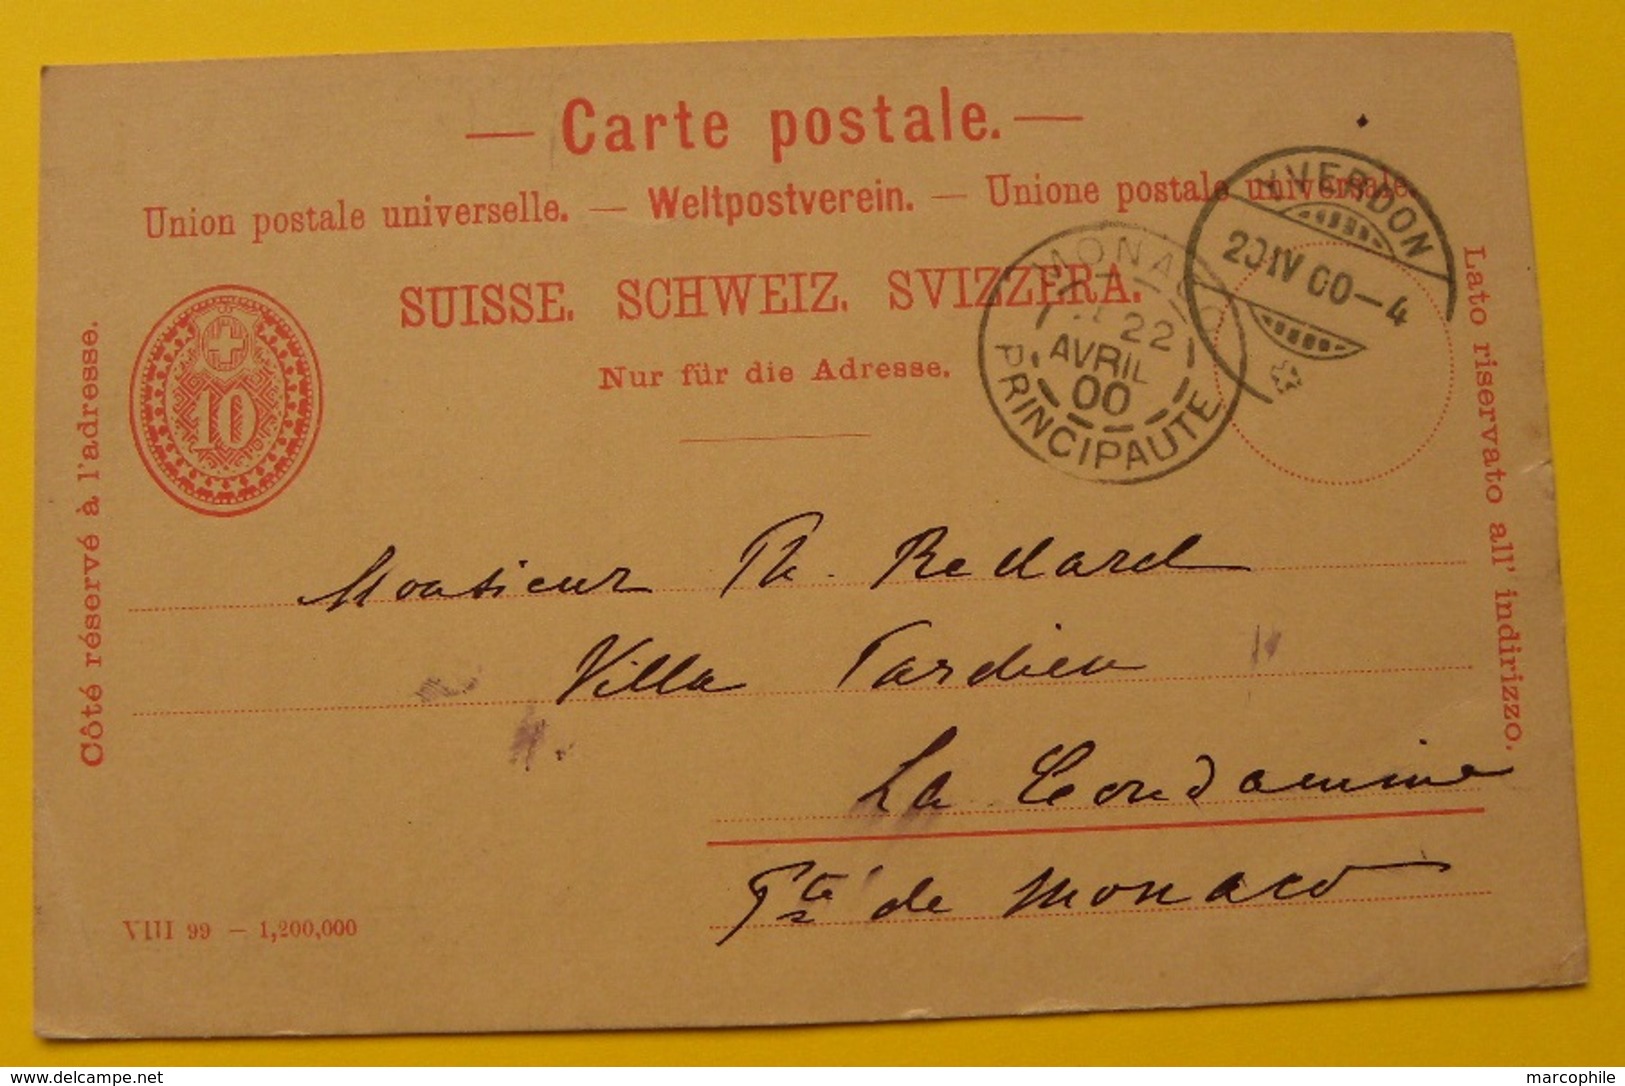 — Carte postale. —
Union postale universelle. — Weltpostverein. — Unione postale universale.
SUISSE. SCHWEIZ. SVIZZERA.
Nur für die Adresse.
10
Côté réservé à l'adresse.
Lato riservato all' indirizzo.
YVERDON
20 IV 00–4
MONACO
22
AVRIL
00
PRINCIPAUTE
Monsieur Th. Redard
Villa Tardieu
La Condamine
Pté de Monaco
VIII 99 – 1,200,000
delcampe.net
marcophile